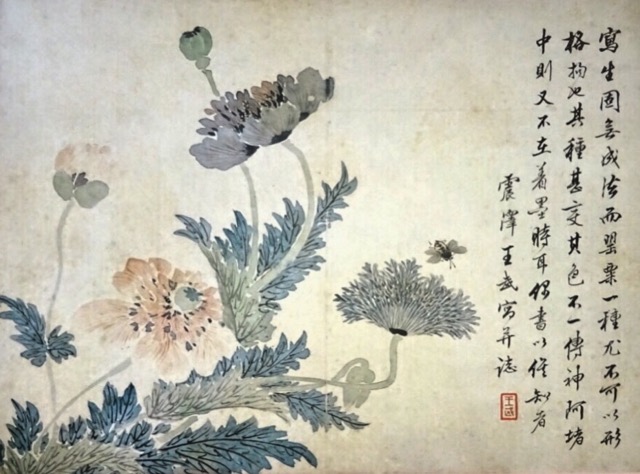 寫生固無成法而罌粟一種尤不可以形
格拘也其種甚變其色不一傳神阿堵
中則又不在着墨時耳偶書以俟知者
震澤王武寫并誌
王武